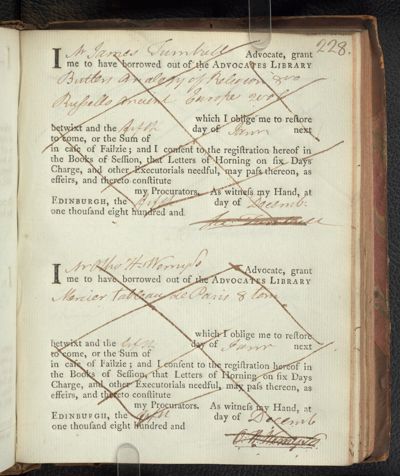 228.
I Mr James Turnbull Advocate, grant
me to have borrowed out of the ADVOCATES LIBRARY
Butlers Analogy of Religion 8vo
Russells ancient Europe 2 vols
which I oblige me to restore
betwixt and the fifth day of Janr next
to come, or the Sum of
in case of Failzie; and I consent to the registration hereof in
the Books of Session, that Letters of Horning on six Days
Charge, and other Executorials needful, may pass thereon, as
effeirs, and thereto constitute
my Procurators. As witness my Hand, at
EDINBURGH, the fifth day of Decemb.
one thousand eight hundred and
I Mr Advocate, grant
me to have borrowed out of the ADVOCATES LIBRARY
Mercier Tableau de Paris 8 tom
which I oblige me to restore
betwixt and the fifth day of Janr next
to come, or the Sum of
in case of Failzie; and I consent to the registration hereof in
the Books of Session, that Letters of Horning on six Days
Charge, and other Executorials needful, may pass thereon, as
effeirs, and thereto constitute
my Procurators. As witness my Hand, at
EDINBURGH, the fifth day of Decemb
one thousand eight hundred and